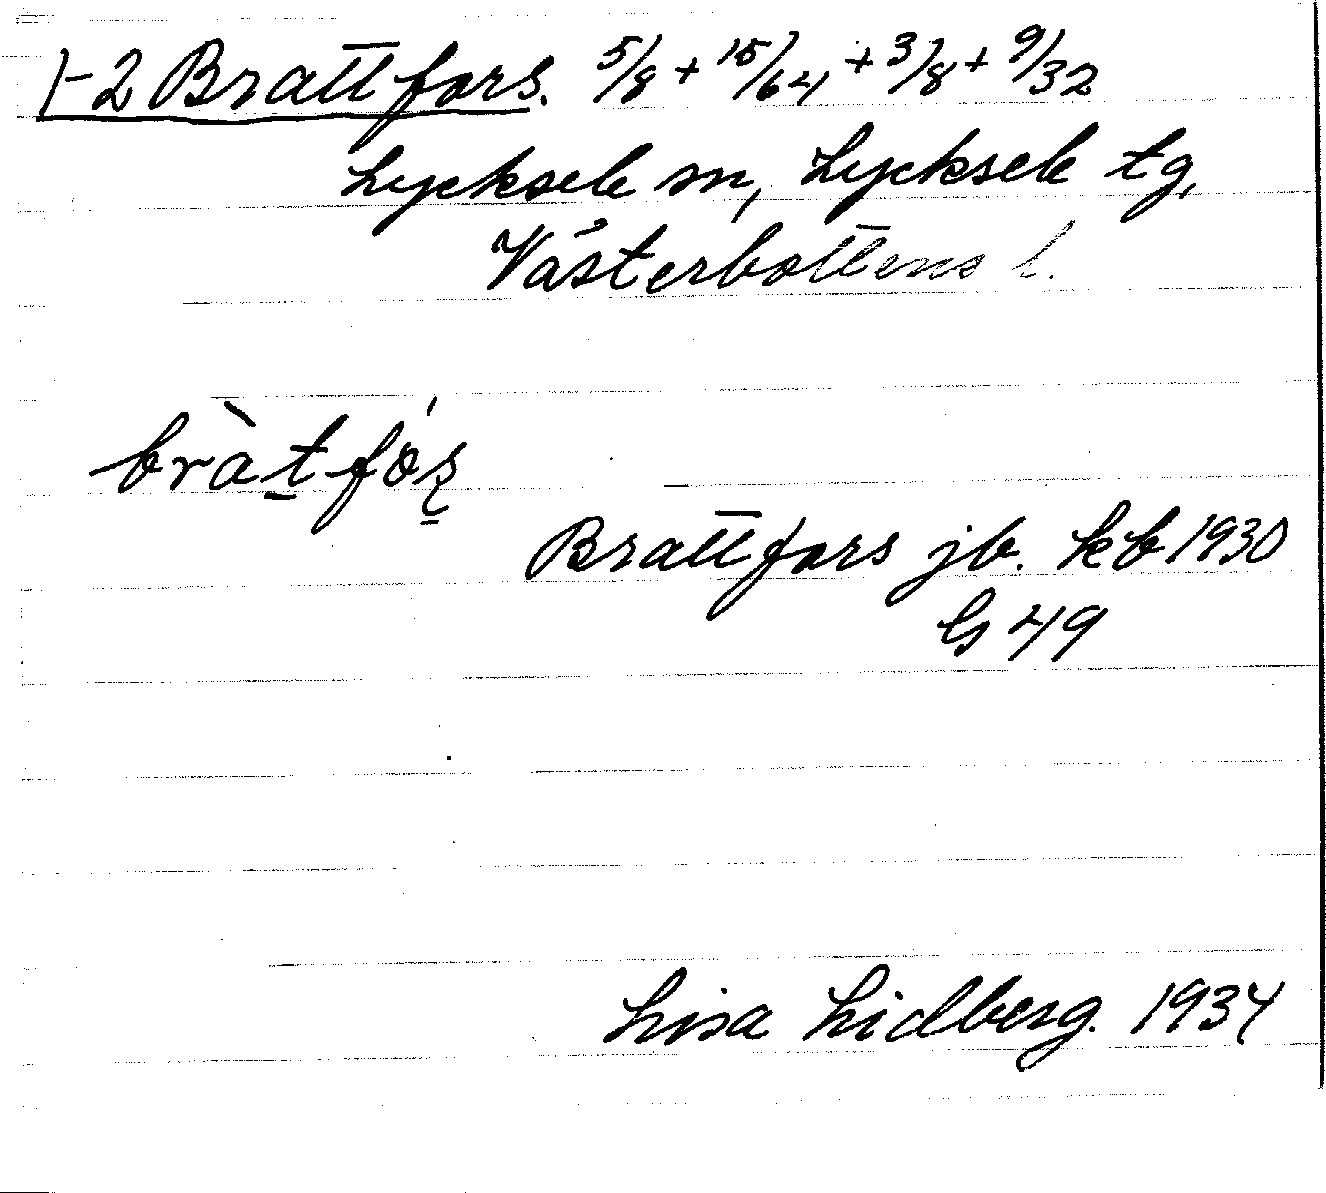 1-2 Brattfors. 5/8 + 15/64 + 3/8 + 9/32
Lycksele sn, Lycksele tg,
Västerbottens l.
bràt̲fóʂ̲
Brattfors jb. kb 1930
G 49
Lisa Lidberg. 1934